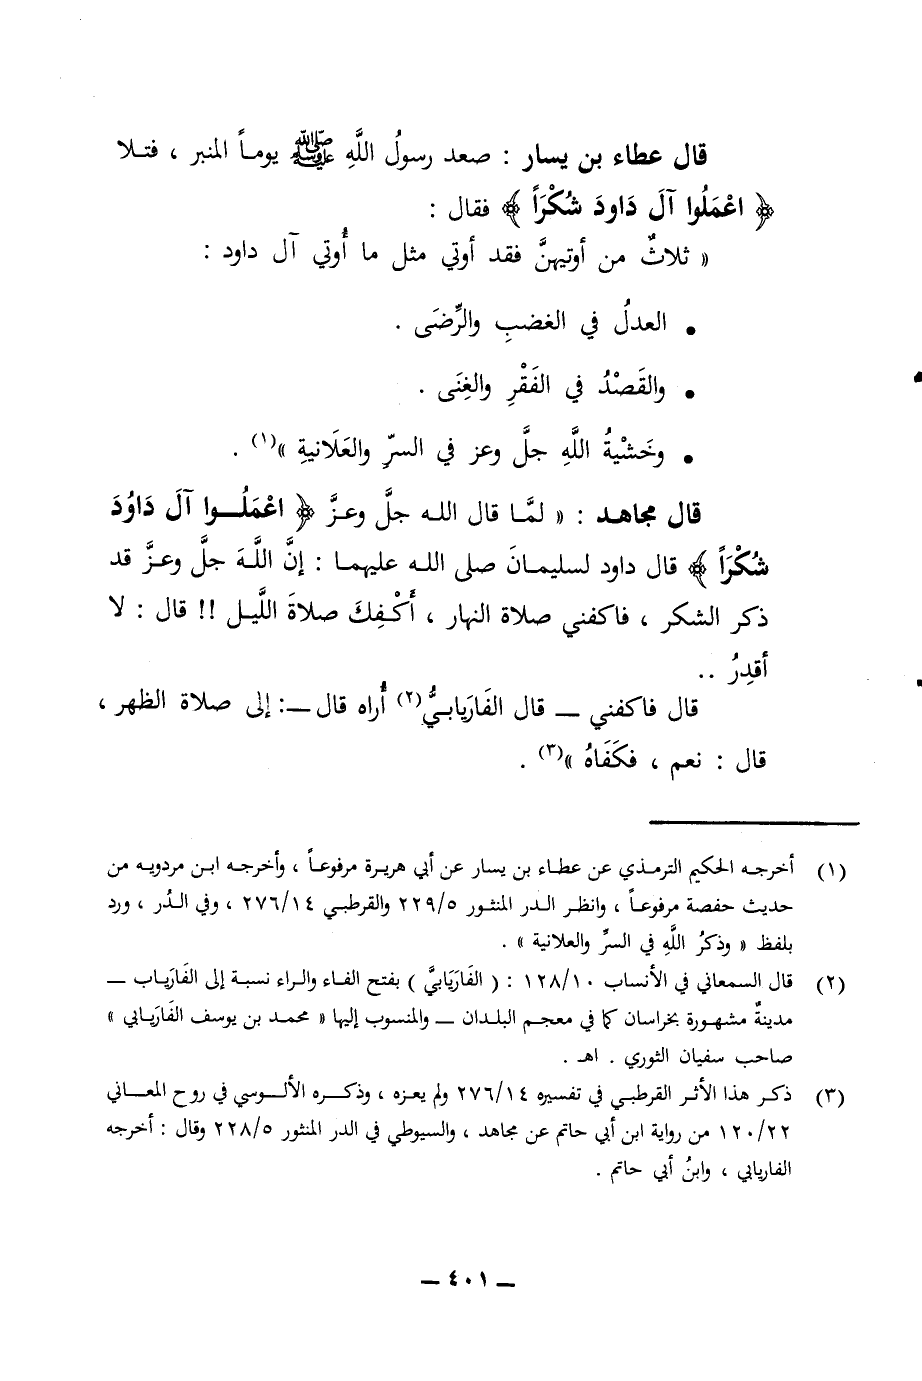 قال عطاء بن يسار : صعد رسولُ اللَّهِ ﷺ يوماً المنبر ، فتلا
﴿ اعْمَلُوا آلَ دَاودَ شُكْرَاً ﴾ فقال :
« ثلاثٌ من أوتيهنَّ فقد أوتي مثل ما أُوتي آل داود :
• العدلُ في الغضبِ والرِّضَى .
• والقَصْدُ في الفَقْرِ والغِنَى .
• وخَشْيةُ اللَّهِ جلَّ وعز في السرِّ والعَلَانيةِ »(١) .
قال مجاهد : « لمَّا قال الله جلَّ وعزَّ ﴿ اعْمَلُوا آلَ دَاوُدَ
شُكْرَاً ﴾ قال داود لسليمانَ صلى الله عليهما : إنَّ اللَّهَ جلَّ وعزَّ قد
ذكر الشكر ، فاكفني صلاة النهار ، أَكْفِكَ صلاةَ اللَّيل !! قال : لا
أقدِرُ ..
قال فاكفني ــ قال الفَارَيابيُّ(٢) أُراه قال ــ: إلى صلاة الظهر ،
قال : نعم ، فكَفَاهُ »(٣) .
(١) أخرجه الحكيم الترمذي عن عطاء بن يسار عن أبي هريرة مرفوعاً ، وأخرجه ابن مردويه من
حديث حفصة مرفوعاً ، وانظر الدر المنثور ٢٢٩/٥ والقرطبي ٢٧٦/١٤ ، وفي الدُر ، ورد
بلفظ « وذكرُ اللَّهِ في السرِّ والعلانية » .
(٢) قال السمعاني في الأنساب ١٢٨/١٠ : ( الفَارَيَابيَّ ) بفتح الفاء والراء نسبة إلى الفَارَياب ــ
مدينةٌ مشهورة بخراسان كما في معجم البلدان ــ والمنسوب إليها « محمد بن يوسف الفَارَيابي »
صاحب سفيان الثوري . اهـ .
(٣) ذكر هذا الأثر القرطبي في تفسيره ٢٧٦/١٤ ولم يعزه ، وذكره الألوسي في روح المعاني
١٢٠/٢٢ من رواية ابن أبي حاتم عن مجاهد ، والسيوطي في الدر المنثور ٢٢٨/٥ وقال : أخرجه
الفاريابي ، وابنُ أبي حاتم .
ــ ٤٠١ ــ